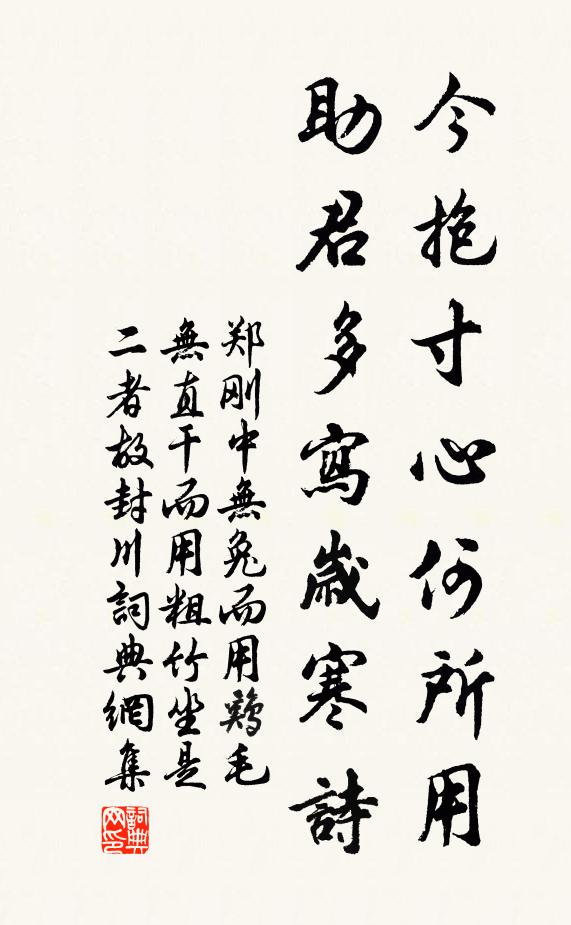 今抱寸心何所用
助君多寫歲寒詩
郑刚中無兔而用鷄毛
無直干而用粗竹坐是
二者故封川詞典網集
詞典网印